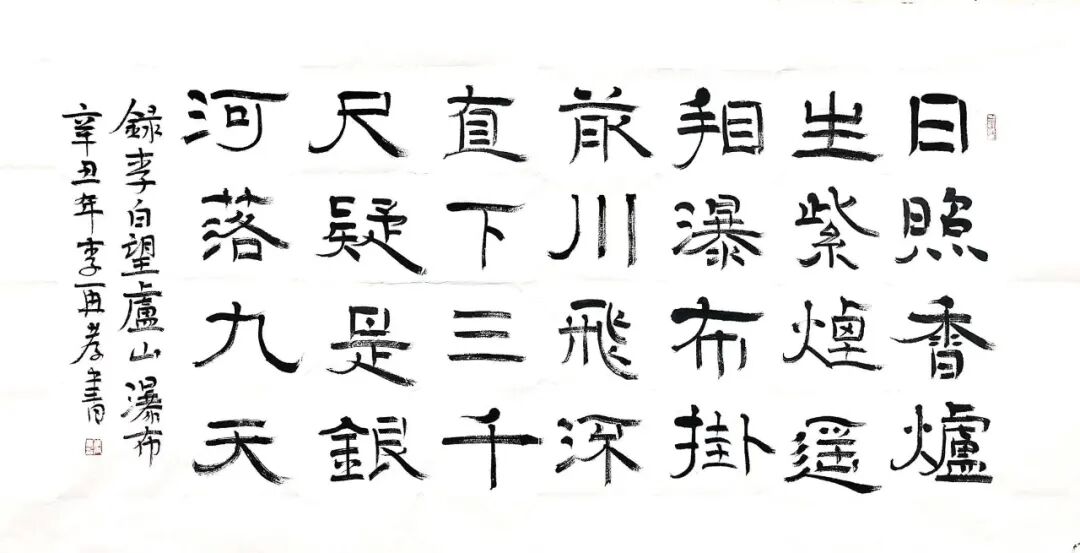 日照香爐
生紫煙遥
看瀑布掛
前川飛深
直下三千
尺疑是銀
河落九天
録李白望盧山瀑布
辛丑年李再孝書